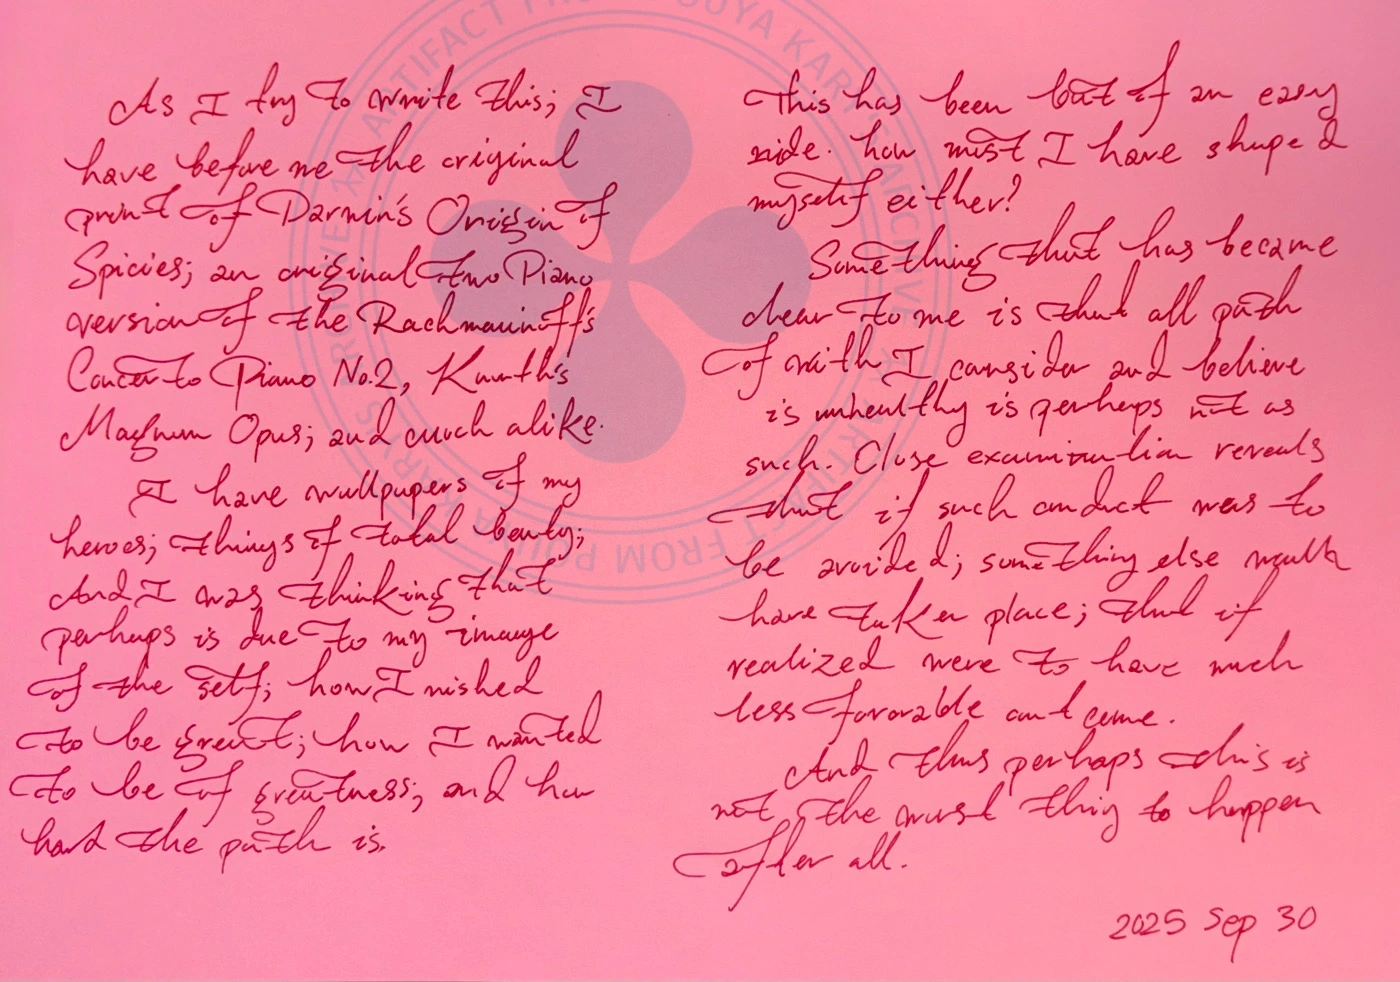 As I try to write this; I
have before me the original
print of Darwin's Origin of
Spicies; an original two Piano
version of the Rachmaninoff's
Concerto Piano No.2, Knuth's
Magnum Opus; and much alike.
I have wallpapers of my
heroes; things of total beauty;
And I was thinking that
perhaps is due to my image
of the self; how I wished
to be great; how I wanted
to be of greatness; and how
hard the path is.
This has been but of an easy
ride. how must I have shaped
myself either?
Something that has became
dear to me is that all path
of with I consider and believe
is unhealthy is perhaps not as
such. Close examination reveals
that if such conduct was to
be avoided; something else would
have taken place; that if
realized were to have much
less favorable outcome.
And thus perhaps this is
not the worst thing to happen
after all.
2025 Sep 30
ARTIFACT FROM POUYA KARY'S ARCHIVE